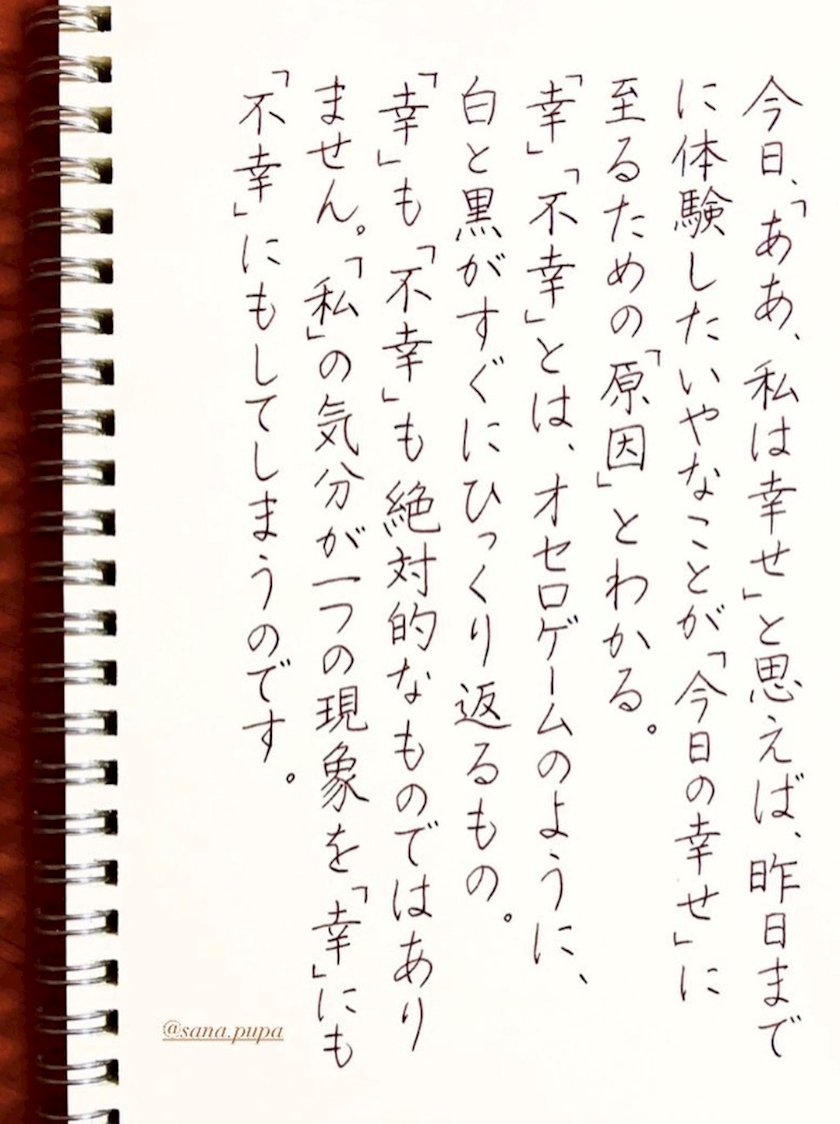 今日、「ああ、私は幸せ」と思えば、昨日まで
に体験したいやなことが「今日の幸せ」に
至るための「原因」とわかる。
「幸」「不幸」とは、オセロゲームのように、
白と黒がすぐにひっくり返るもの。
「幸」も「不幸」も絶対的なものではあり
ません。「私」の気分が一つの現象を「幸」にも
「不幸」にもしてしまうのです。
@sana.pupa